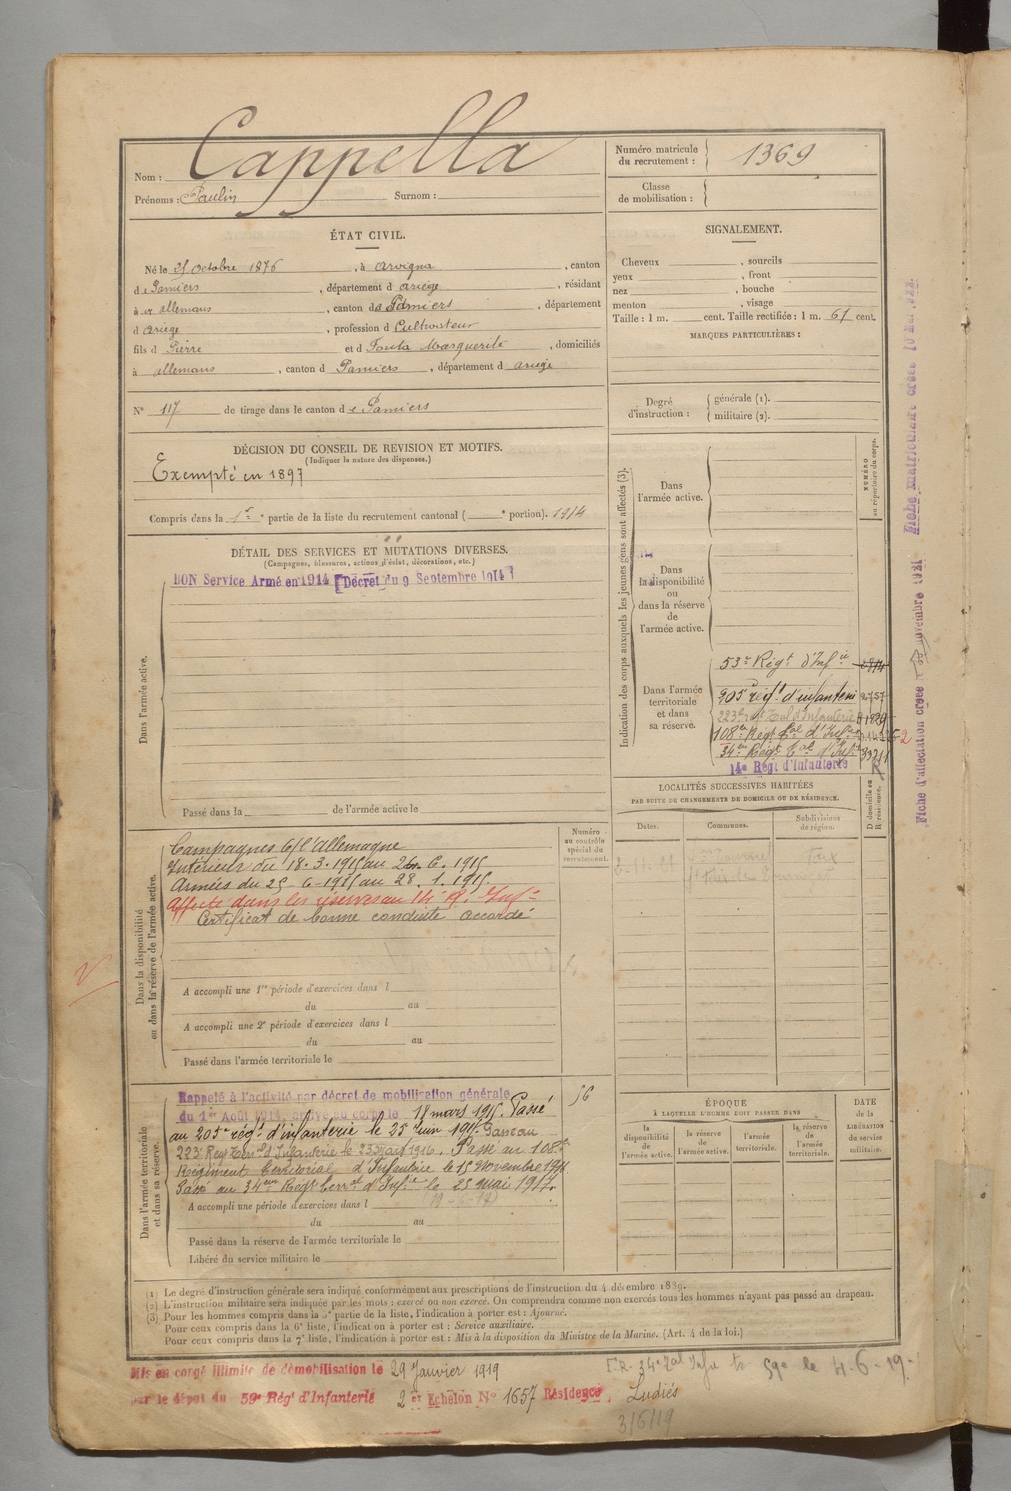 Nom : Cappella
Prénoms : Paulin Surnom :
Numéro matricule du recrutement : 1369
Classe de mobilisation :
ÉTAT CIVIL.
Né le 25 Octobre 1876, à Arvigna, canton
de Pamiers, département d ariège, résidant
à allemans, canton de Pamiers, département
d Ariège, profession d Cultivateur
fils d Pierre et d Fonta Marguerite, domiciliés
à allemans, canton d Pamiers, département d ariège
N° 117 de tirage dans le canton de Pamiers
SIGNALEMENT.
Cheveux , sourcils
yeux , front
nez , bouche
menton , visage
Taille : 1 m. cent. Taille rectifiée : 1 m. 61 cent.
MARQUES PARTICULIÈRES :
Degré d'instruction : générale (1).
militaire (2).
DÉCISION DU CONSEIL DE REVISION ET MOTIFS.
(Indiquer la nature des dispenses.)
Exempté en 1897
Compris dans la 1re partie de la liste du recrutement cantonal ( e portion). 1914
DÉTAIL DES SERVICES ET MUTATIONS DIVERSES.
(Campagnes, blessures, actions d'éclat, décorations, etc.)
BON Service Armé en 1914 [Décret du 9 Septembre 1914]
Dans l'armée active.
Passé dans la de l'armée active le
Indication des corps auxquels les jeunes gens sont affectés (3).
NUMÉRO au répertoire du corps.
Dans l'armée active.
Dans la disponibilité ou dans la réserve de l'armée active.
Dans l'armée territoriale et dans sa réserve.
53e Régt d'Infie
205e régt d'infanterie 2757
223e rgt Tal d'Infanterie 1829
108e Régt Tal d'Infie
34me Régt Tal d'Infie
14e Régt d'Infanterie
Dans la disponibilité ou dans la réserve de l'armée active.
Numéro au contrôle spécial du recrutement.
Campagnes C/ l'Allemagne
Intérieur du 18.3.1915 au 24.6.1915
Armées du 25-6-1915 au 28.1.1919.
Affecté dans les réserves au 14e R. Infie
Certificat de bonne conduite accordé
A accompli une 1re période d'exercices dans l
du au
A accompli une 2e période d'exercices dans l
du au
Passé dans l'armée territoriale le
LOCALITÉS SUCCESSIVES HABITÉES
PAR SUITE DE CHANGEMENTS DE DOMICILE OU DE RÉSIDENCE.
Dates. Communes. Subdivisions de région. D domicile ou R résidence.
Foix
Dans l'armée territoriale et dans sa réserve.
Rappelé à l'activité par décret de mobilisation générale
du 1er Août 1914, arrivé au corps le 18 mars 1915. Passé
au 205e régt d'infanterie le 25 juin 1915. Passé au
223e Reg Terrial d'Infanterie le 23 Mars 1916. Passé au 108e
Régiment Territorial d'Infanterie le 15 Novembre 1916
Passé au 34me Régt terral d'Infie le 25 mai 1917.
56
A accompli une période d'exercices dans l
du au
Passé dans la réserve de l'armée territoriale le
Libéré du service militaire le
ÉPOQUE
À LAQUELLE L'HOMME DOIT PASSER DANS
la disponibilité de l'armée active. la réserve de l'armée active. l'armée territoriale. la réserve de l'armée territoriale.
DATE de la LIBÉRATION du service militaire.
(1) Le degré d'instruction générale sera indiqué conformément aux prescriptions de l'instruction du 4 décembre 1889.
(2) L'instruction militaire sera indiquée par les mots : exercé ou non exercé. On comprendra comme non exercés tous les hommes n'ayant pas passé au drapeau.
(3) Pour les hommes compris dans la 5e partie de la liste, l'indication à porter est : Ajourné.
Pour ceux compris dans la 6e liste, l'indication à porter est : Service auxiliaire.
Pour ceux compris dans la 7e liste, l'indication à porter est : Mis à la disposition du Ministre de la Marine. (Art. 4 de la loi.)
Mis en congé illimité de démobilisation le 29 Janvier 1919
par le dépôt du 59e Régt d'Infanterie 2er Echelon N° 1657 Résidence, Ludiés
34e Tal Infie 59e le 4-6-19
3/6/19
Fiche d'affectation créée Novembre 1921
Fiche matriculaire créée